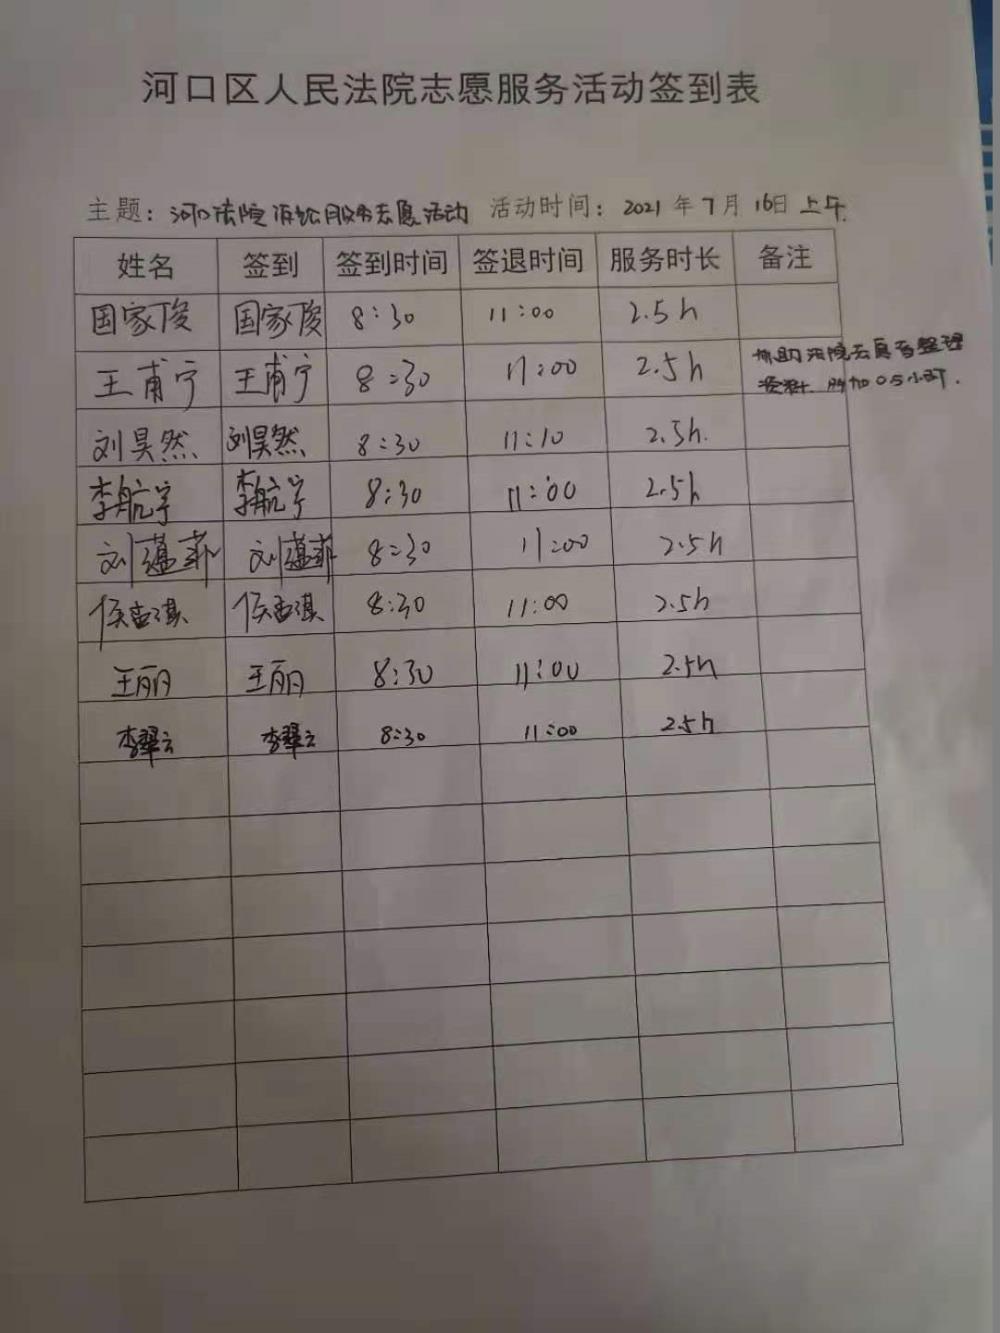 河口区人民法院志愿服务活动签到表
主题：河口法院诉讼服务志愿活动 活动时间：2021年7月16日上午.
姓名 签到 签到时间 签退时间 服务时长 备注
国家俊 国家俊 8:30 11:00 2.5h
王甫宁 王甫宁 8:30 11:00 2.5h 协助法院 整理
资料 加0.5小时.
刘昊然 刘昊然 8:30 11:10 2.5h.
李航宇 李航宇 8:30 11:00 2.5h
刘蕴菲 刘蕴菲 8:30 11:00 2.5h
8:30 11:00 2.5h
王丽 王丽 8:30 11:00 2.5h
李翠云 李翠云 8:30 11:00 2.5h